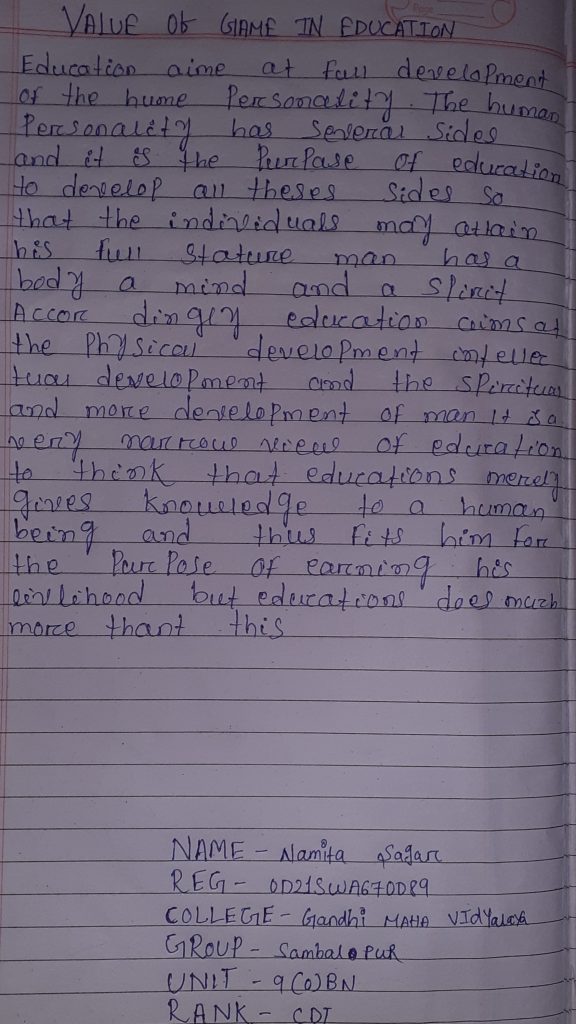 VALUE Of GAME IN EDUCATION
Education aime at full development
of the hume Personality. The human
Personality has several sides
and it is the PurPase of education
to develop all theses sides so
that the individuals may attain
his full stature man has a
body a mind and a spirit
Accor dingly education aims at
the Physical development intellec
tual development and the spiritual
and more development of man It is a
very narrow view of education
to think that educations merely
gives knowledge to a human
being and thus fits him for
the PurPose of earning his
livlihood but educations does much
more thant this
NAME - Namita Sagar
REG - OD21SWA670089
COLLEGE - Gandhi MAHA VIdYalaya
GROUP - Sambalpur
UNIT - 9(O)BN
RANK - CDT